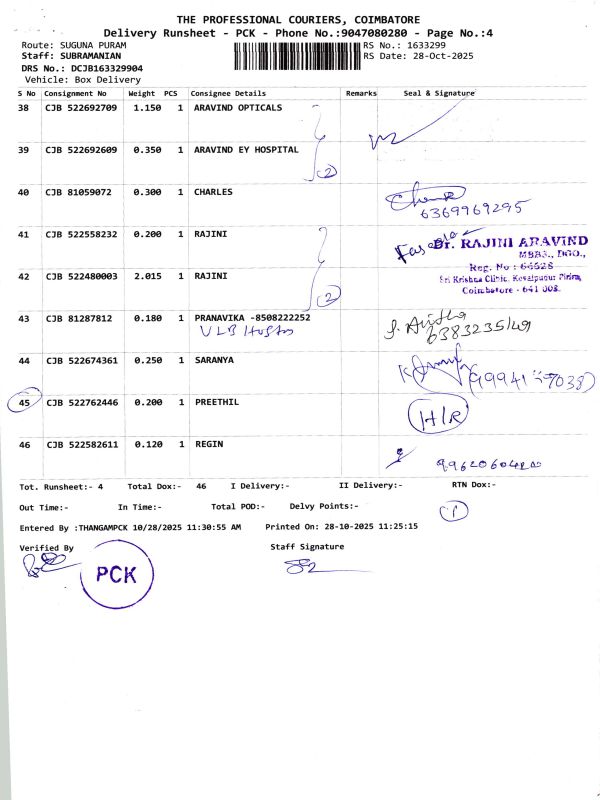 THE PROFESSIONAL COURIERS, COIMBATORE
Delivery Runsheet - PCK - Phone No.:9047080280 - Page No.:4
Route: SUGUNA PURAM RS No.: 1633299
Staff: SUBRAMANIAN RS Date: 28-Oct-2025
DRS No.: DCJB163329904
Vehicle: Box Delivery
S No Consignment No Weight PCS Consignee Details Remarks Seal & Signature
38 CJB 522692709 1.150 1 ARAVIND OPTICALS
39 CJB 522692609 0.350 1 ARAVIND EY HOSPITAL
2
40 CJB 81059072 0.300 1 CHARLES
6369969295
41 CJB 522558232 0.200 1 RAJINI
Dr. RAJINI ARAVIND
MBBS., DGO.,
Reg. No : 66628
Sri Krishna Clinic, Kovaipudur Pirivu,
Coimbatore - 641 008.
42 CJB 522480003 2.015 1 RAJINI
2
43 CJB 81287812 0.180 1 PRANAVIKA -8508222252
VLB
44 CJB 522674361 0.250 1 SARANYA
45 CJB 522762446 0.200 1 PREETHIL
H/R
46 CJB 522582611 0.120 1 REGIN
Tot. Runsheet:- 4 Total Dox:- 46 I Delivery:- II Delivery:- RTN Dox:-
Out Time:- In Time:- Total POD:- Delvy Points:- 1
Entered By :THANGAMPCK 10/28/2025 11:30:55 AM Printed On: 28-10-2025 11:25:15
Verified By Staff Signature
PCK